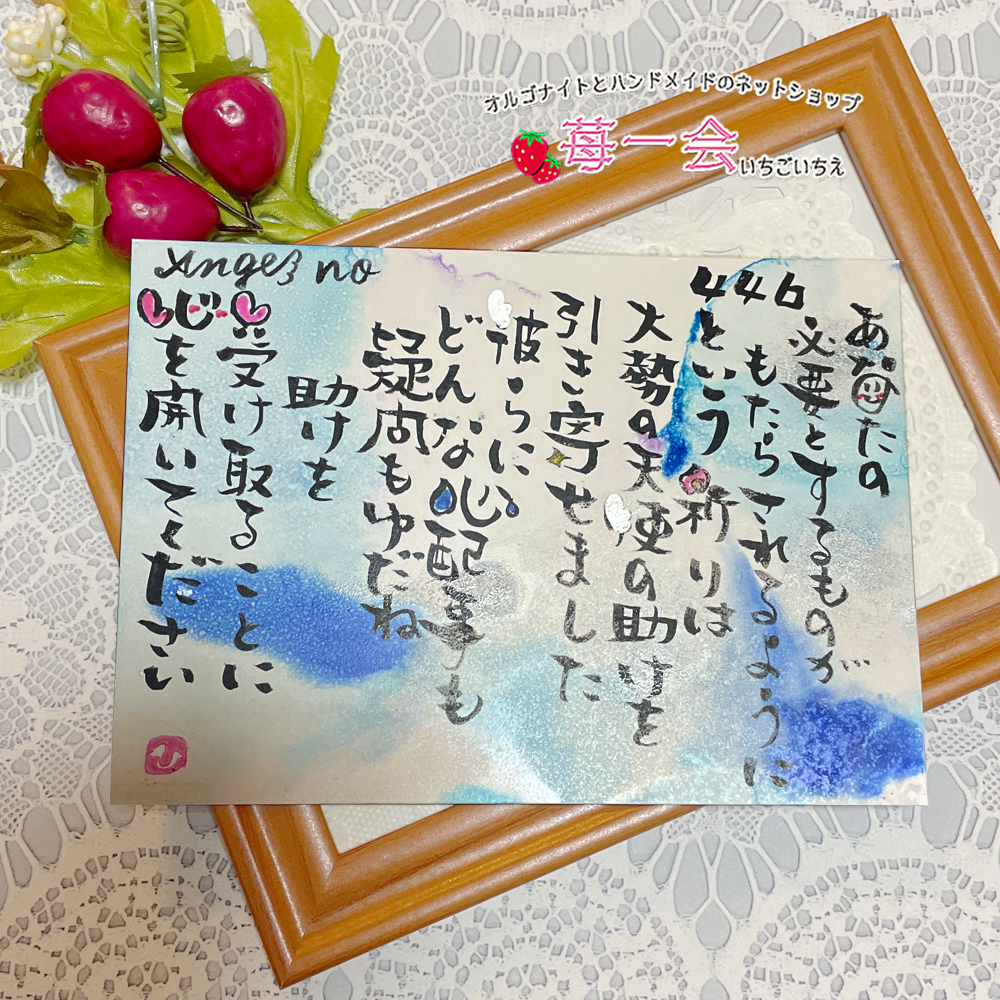 オルゴナイトとハンドメイドのネットショップ
苺一会
いちごいちえ
Angel no 446
あなたの
必要とするものが
もたらされるように
という祈りは
大勢の天使の助けを
引き寄せました
彼らに
どんな心配事も
疑問もゆだね
助けを
受け取ることに
心を開いてください